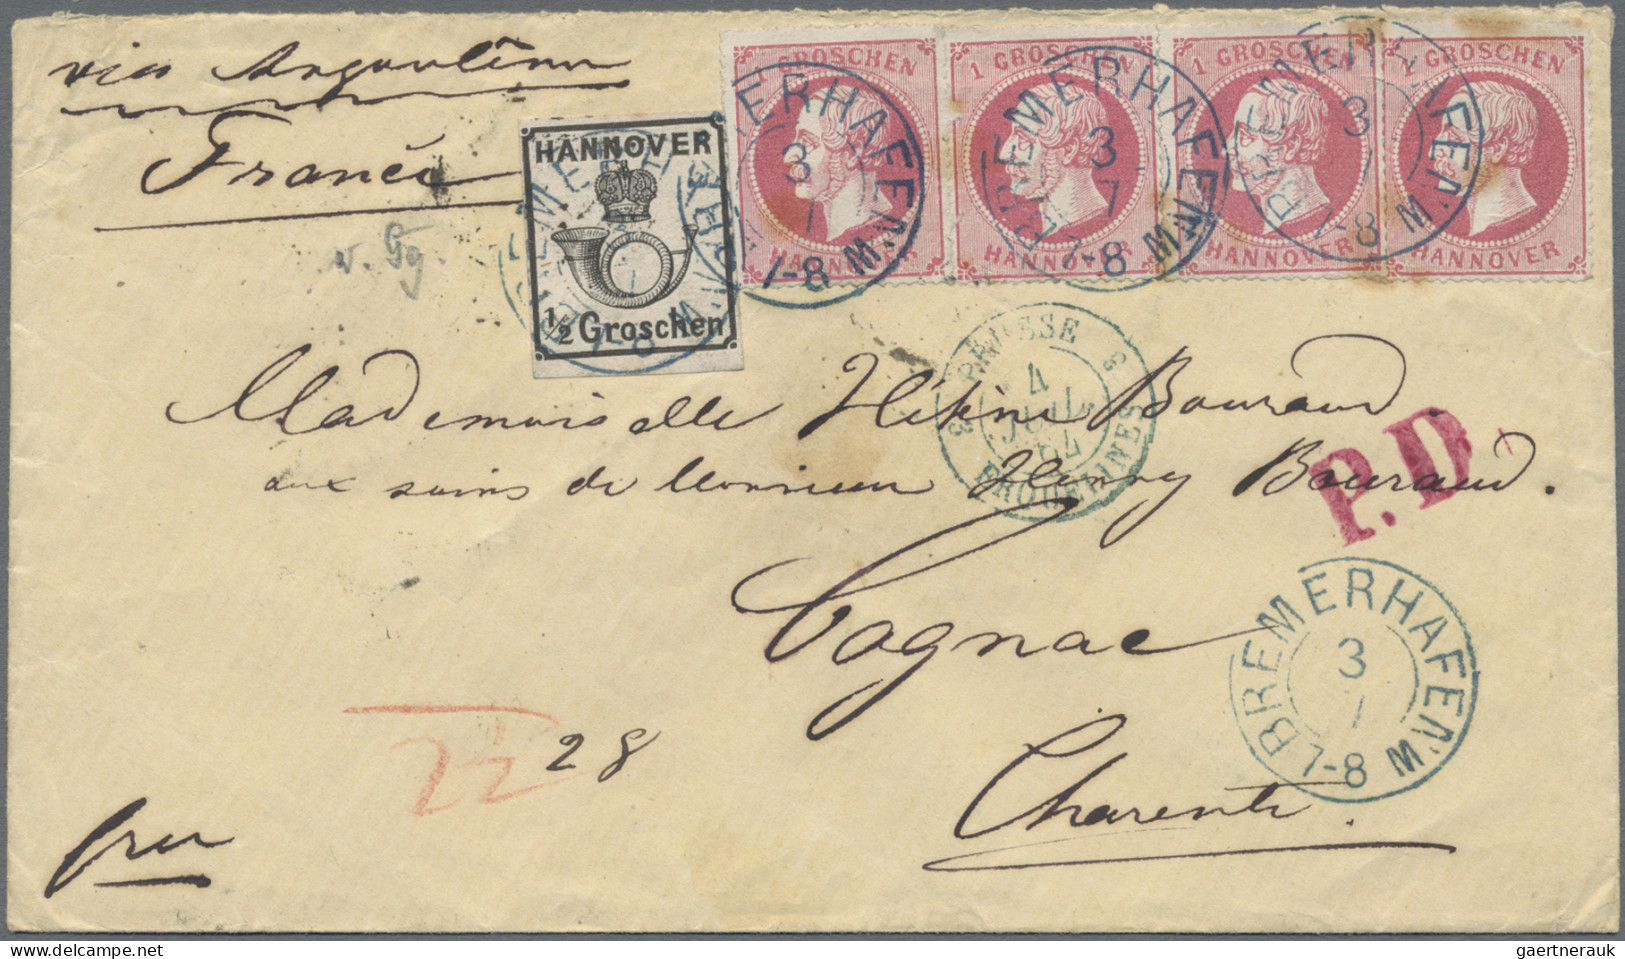 via Angoulême
France
HANNOVER
1/2 Groschen
1 GROSCHEN
HANNOVER
1 GROSCHEN
HANNOVER
1 GROSCHEN
HANNOVER
1 GROSCHEN
HANNOVER
BREMERHAFEN
3
7
7-8 M
BREMERHAFEN
3
7
7-8 M
BREMERHAFEN
3
7-8 M
PRUSSE
3 3
4
JUIL.
64
ERQUELINES
Mademoiselle Bouraud.
aux soins de Monsieur Henry Bouraud.
P.D.
Cognac
Charente.
BREMERHAFEN
3
7
7-8 M
28
gaertnerauk